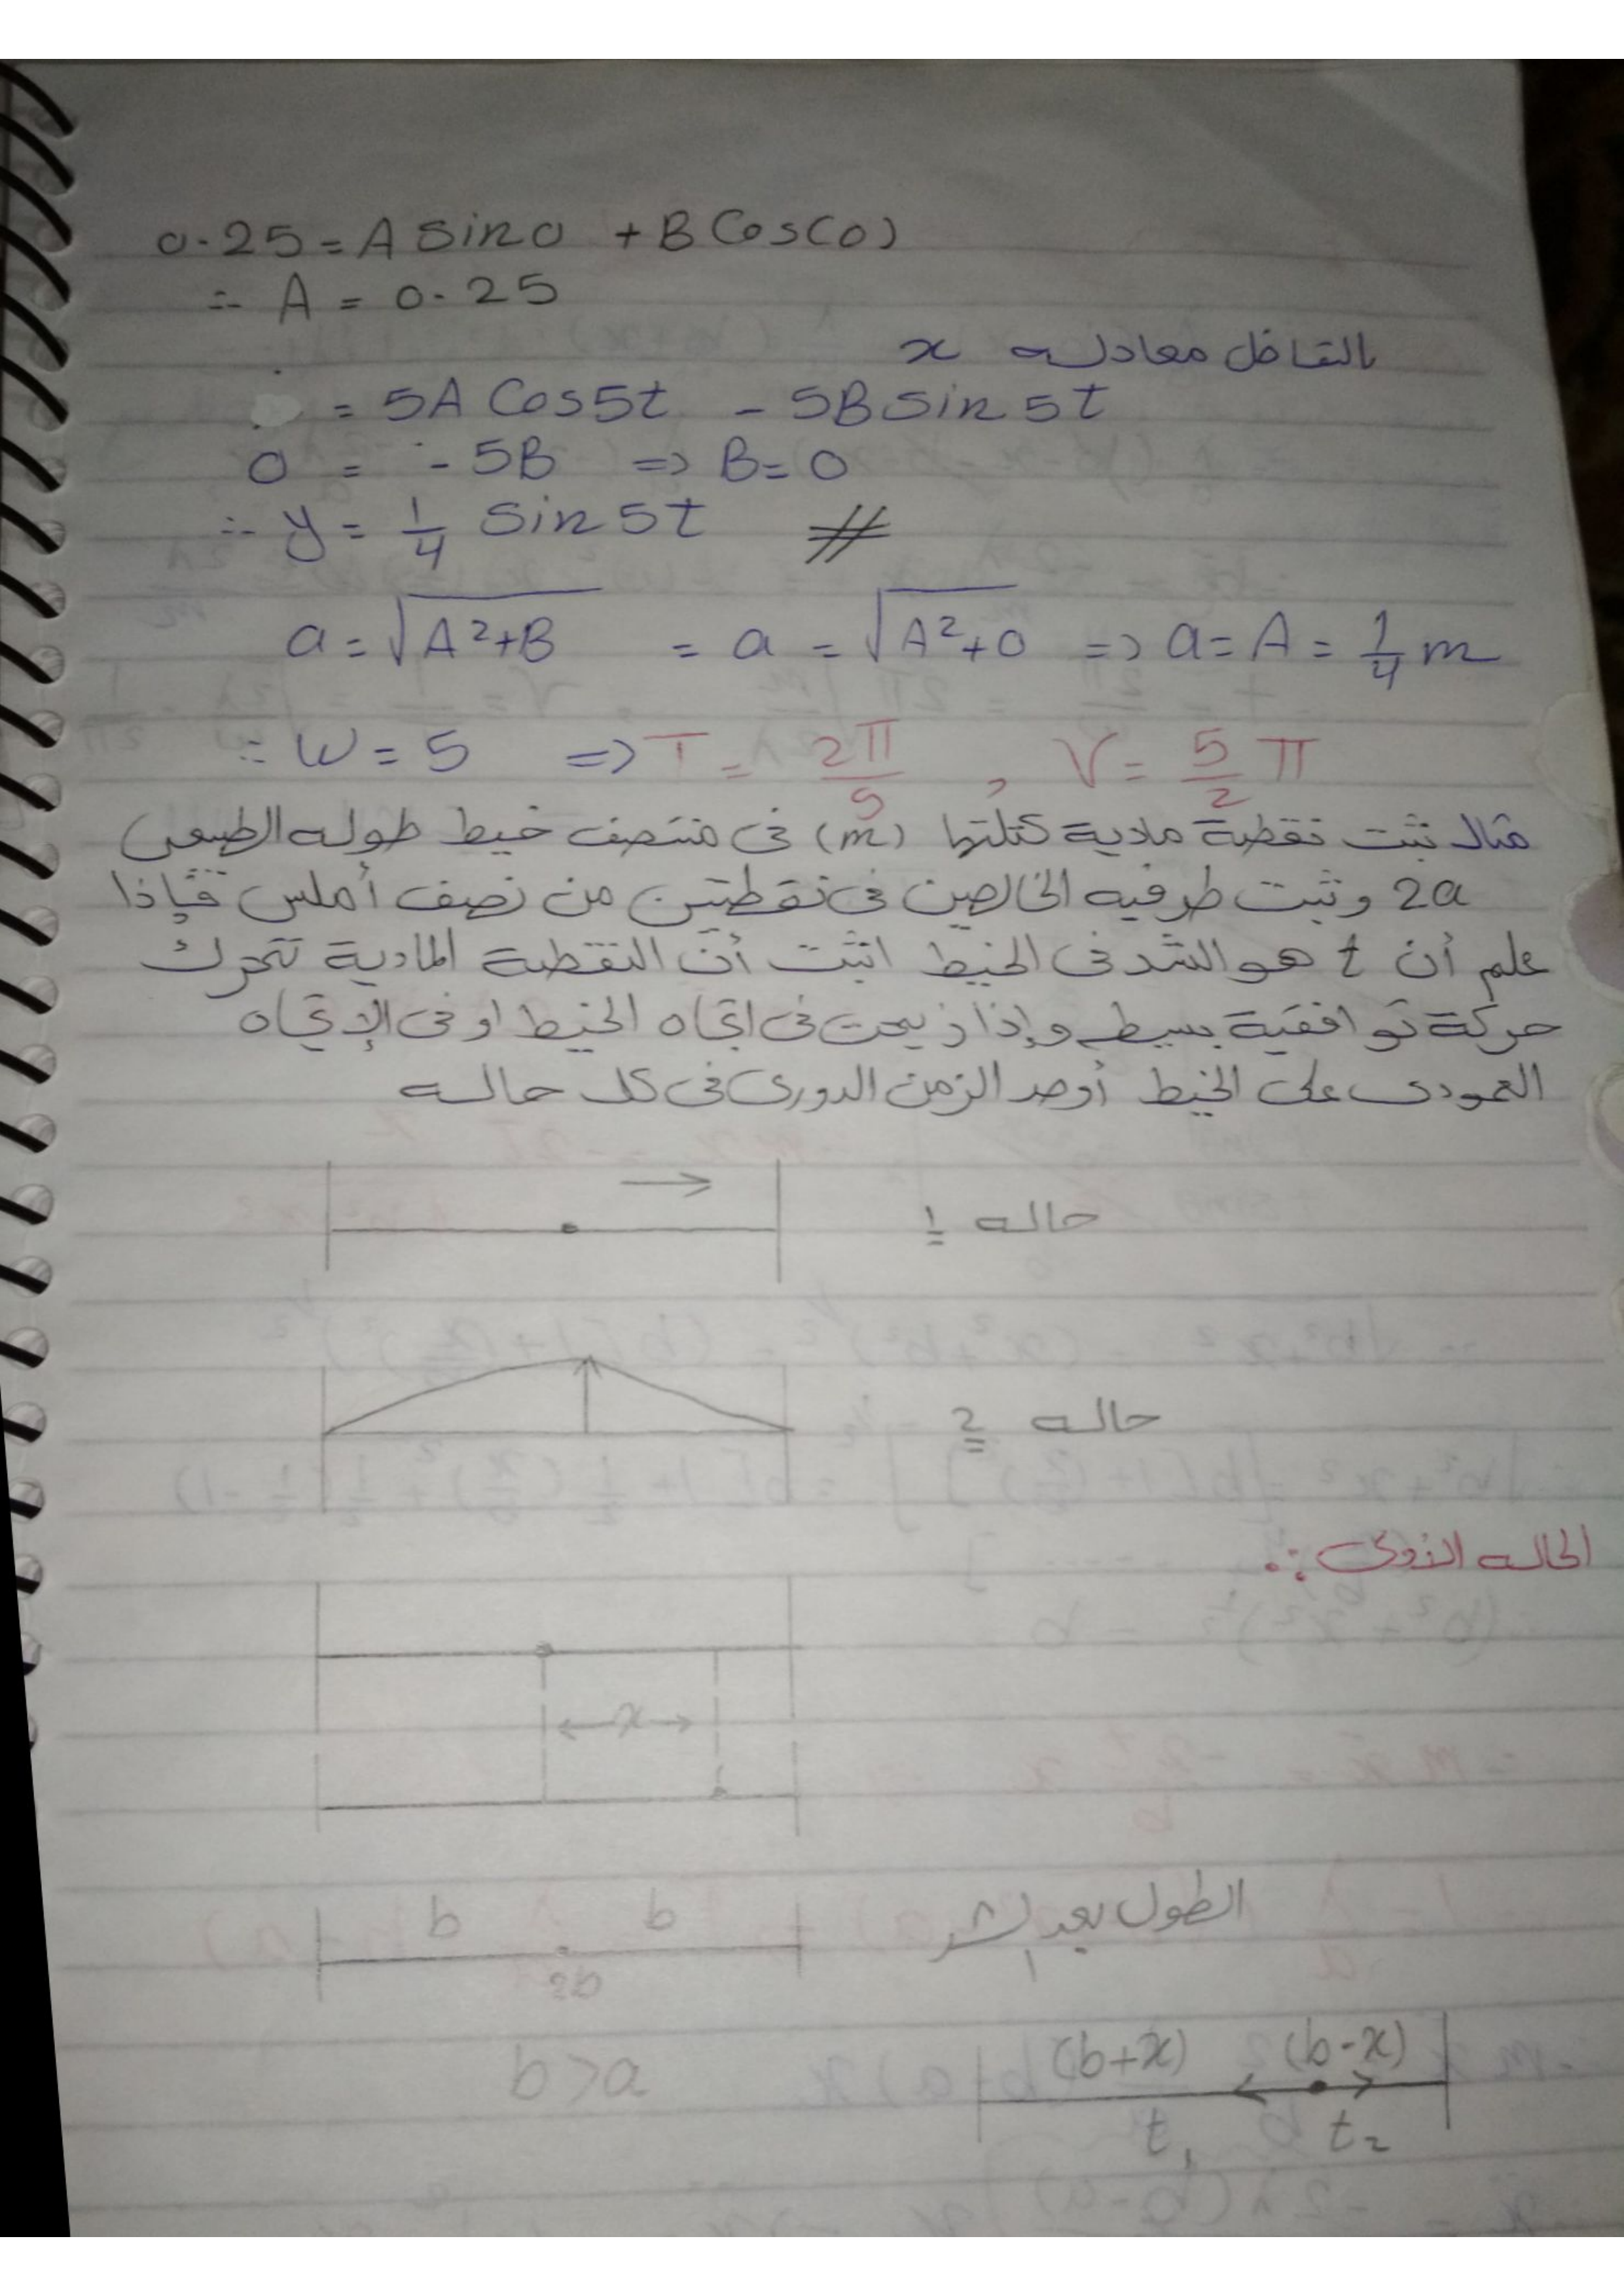 0.25 = A sin 0 + B Cos(0)
∴ A = 0.25
بالتفاضل معادله x
= 5A Cos5t - 5B sin 5t
0 = - 5B => B = 0
∴ y = 1/4 sin 5t #
a = √A²+B = a = √A²+0 => a = A = 1/4 m
∴ W = 5 => T = 2π/5 , V = 5/2 π
مثال ثبت نقطة مادية كتلتها (m) فى منتصف خيط طوله الطبيعى
2a وثبت طرفيه الخالصين فى نقطتين من نصف أملس فإذا
علم أن t هو الشد فى الخيط اثبت أن النقطة المادية تتحرك
حركة توافقية بسيطه وإذا زيحت فى اتجاه الخيط او فى الإتجاه
العمودى على الخيط أوجد الزمن الدورى فى كل حاله
حاله 1
حاله 2
الحاله الأولى :.
x
الطول بعد الشد
b b
2b
b>a
(b+x) (b-x)
t₁ t₂